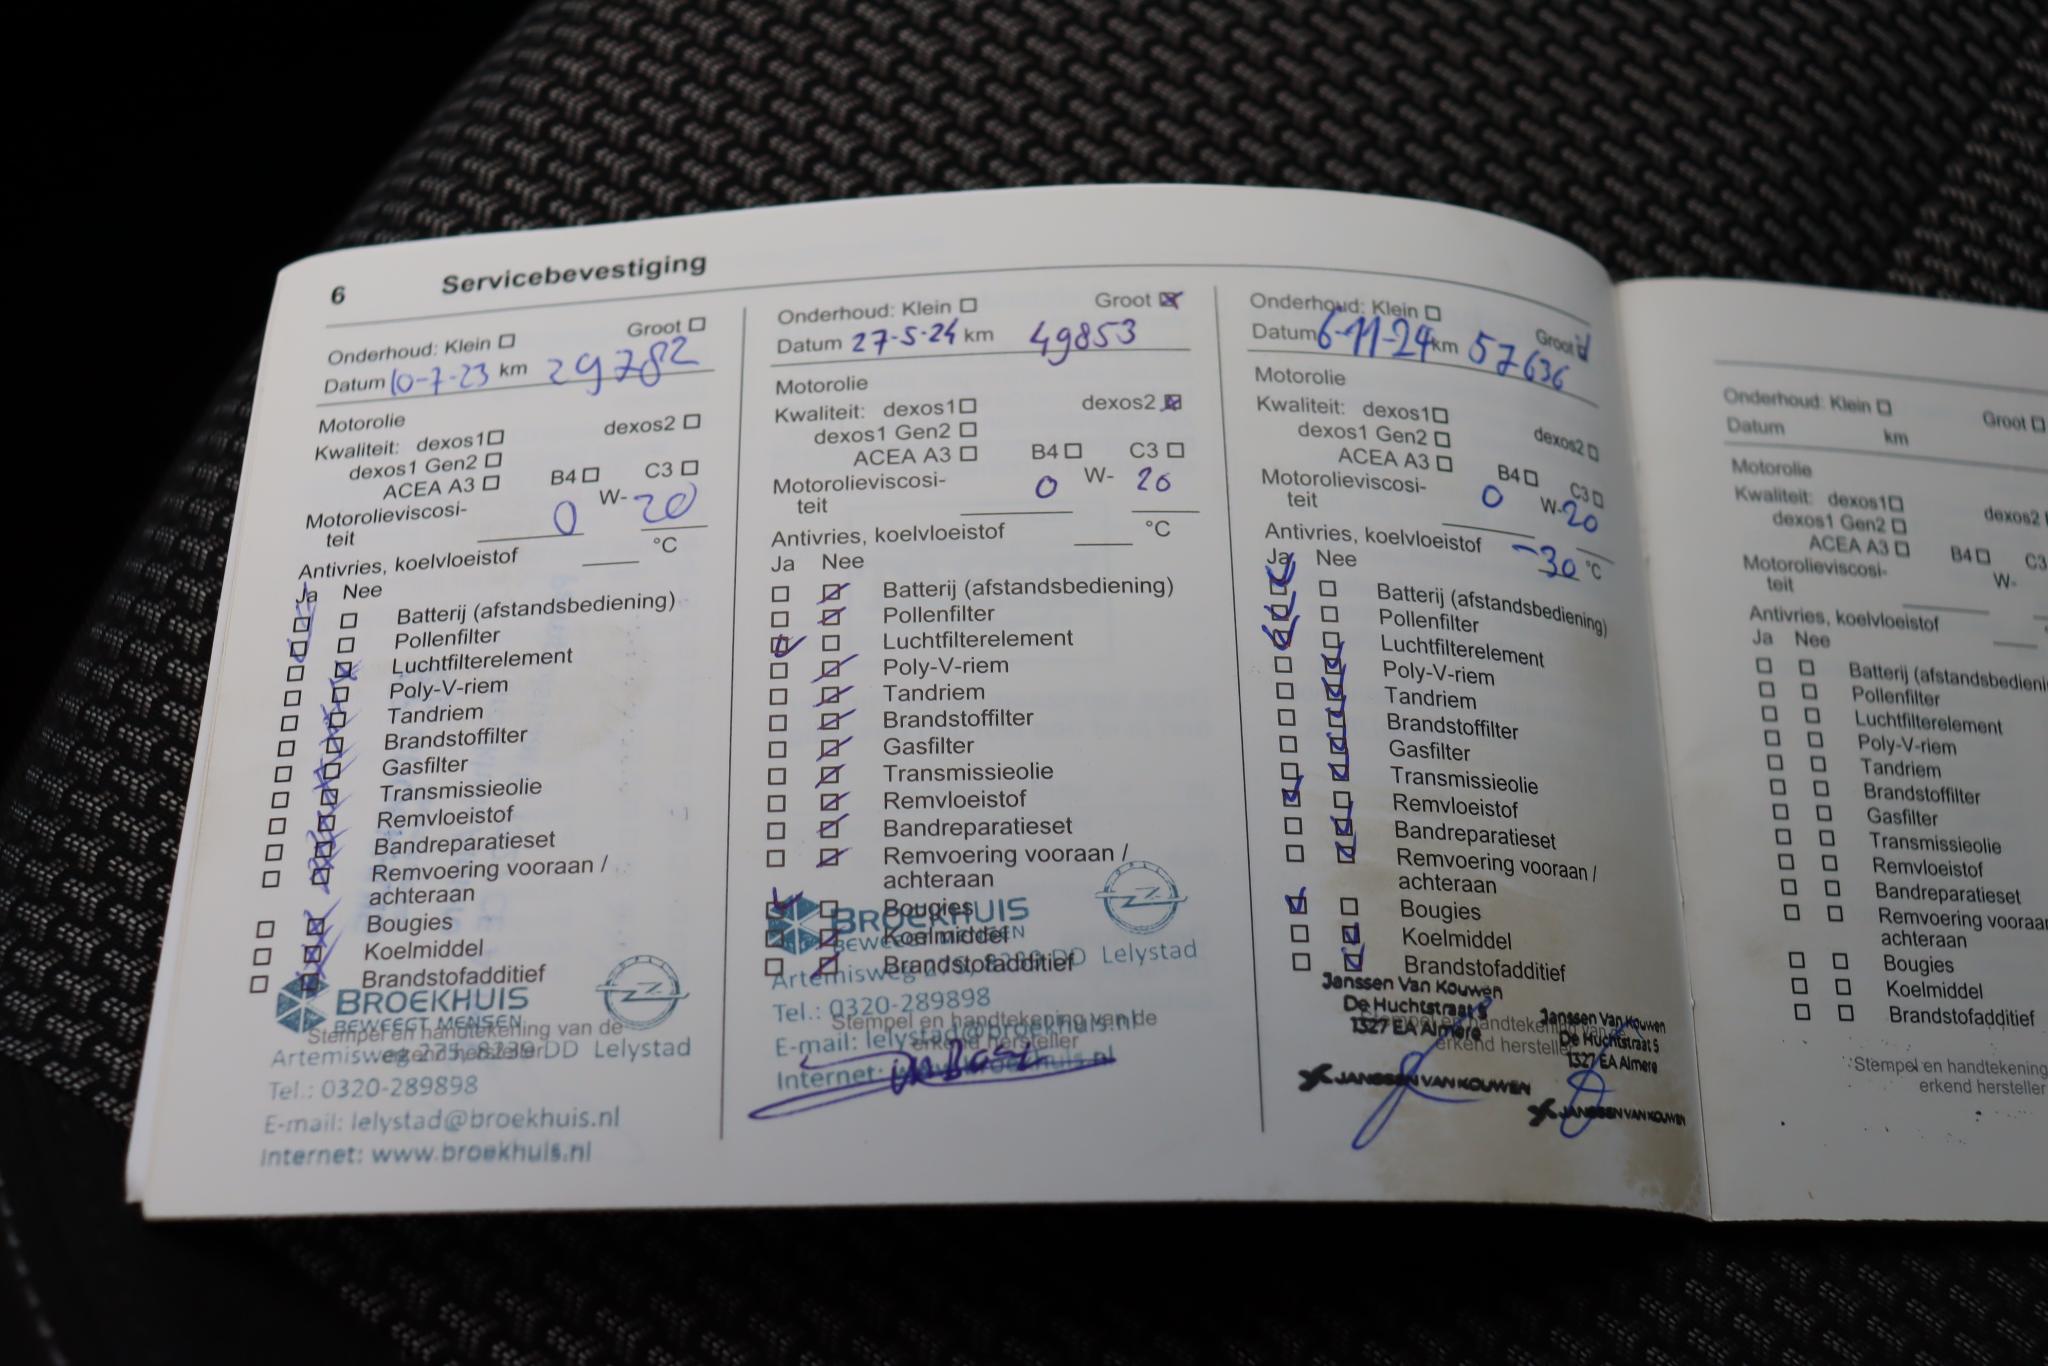 6 Servicebevestiging
Onderhoud: Klein Groot
Datum 10-7-23 km 29782
Motorolie
Kwaliteit: dexos1 dexos2
dexos1 Gen2
ACEA A3 B4 C3
Motorolieviscosi-
teit 0 W- 20
Antivries, koelvloeistof °C
Ja Nee
Batterij (afstandsbediening)
Pollenfilter
Luchtfilterelement
Poly-V-riem
Tandriem
Brandstoffilter
Gasfilter
Transmissieolie
Remvloeistof
Bandreparatieset
Remvoering vooraan /
achteraan
Bougies
Koelmiddel
Brandstofadditief
BROEKHUIS
BEWEEGT MENSEN
Stempel en handtekening van de
erkend hersteller
Artemisweg 275, 8239 DD Lelystad
Tel.: 0320-289898
E-mail: lelystad@broekhuis.nl
Internet: www.broekhuis.nl
Onderhoud: Klein Groot
Datum 27-5-24 km 49853
Motorolie
Kwaliteit: dexos1 dexos2
dexos1 Gen2
ACEA A3 B4 C3
Motorolieviscosi-
teit 0 W- 20
Antivries, koelvloeistof °C
Ja Nee
Batterij (afstandsbediening)
Pollenfilter
Luchtfilterelement
Poly-V-riem
Tandriem
Brandstoffilter
Gasfilter
Transmissieolie
Remvloeistof
Bandreparatieset
Remvoering vooraan /
achteraan
Bougies
BROEKHUIS
Koelmiddel
BEWEEGT MENSEN
Brandstofadditief
Artemisweg 275, 8239 DD Lelystad
Tel.: 0320-289898
Stempel en handtekening van de
E-mail: lelystad@broekhuis.nl
erkend hersteller
Internet: www.broekhuis.nl
Onderhoud: Klein Groot
Datum 6-11-24 km 57636
Motorolie
Kwaliteit: dexos1 dexos2
dexos1 Gen2
ACEA A3 B4 C3
Motorolieviscosi-
teit 0 W- 20
Antivries, koelvloeistof -30 °C
Ja Nee
Batterij (afstandsbediening)
Pollenfilter
Luchtfilterelement
Poly-V-riem
Tandriem
Brandstoffilter
Gasfilter
Transmissieolie
Remvloeistof
Bandreparatieset
Remvoering vooraan /
achteraan
Bougies
Koelmiddel
Brandstofadditief
Janssen Van Kouwen
De Huchtstraat 5
1327 EA Almere
JANSSEN VAN KOUWEN
Stempel en handtekening van de
erkend hersteller
Janssen Van Kouwen
De Huchtstraat 5
1327 EA Almere
JANSSEN VAN KOUWEN
Onderhoud: Klein Groot
Datum km
Motorolie
Kwaliteit: dexos1 dexos2
dexos1 Gen2
ACEA A3 B4 C3
Motorolieviscosi-
teit W-
Antivries, koelvloeistof
Ja Nee
Batterij (afstandsbedieni
Pollenfilter
Luchtfilterelement
Poly-V-riem
Tandriem
Brandstoffilter
Gasfilter
Transmissieolie
Remvloeistof
Bandreparatieset
Remvoering vooraa
achteraan
Bougies
Koelmiddel
Brandstofadditief
Stempel en handtekening
erkend hersteller